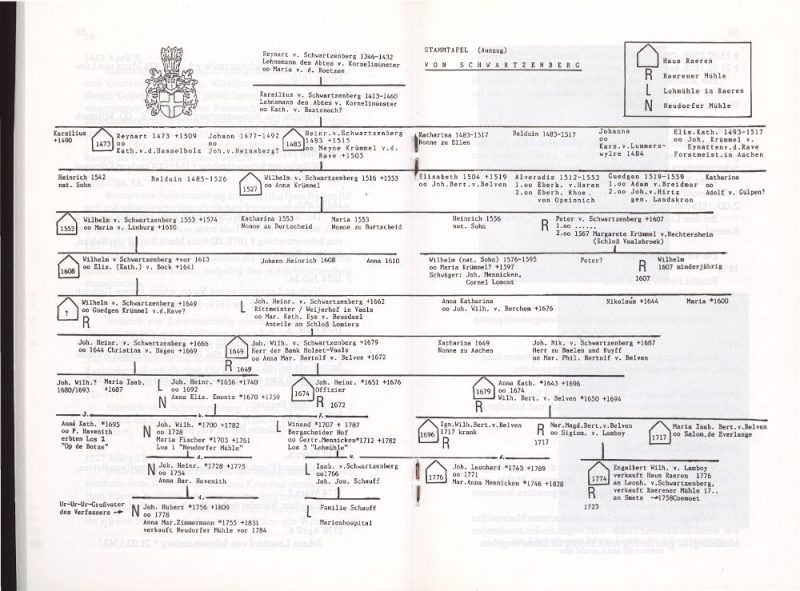 Reynart v. Schwartzenberg 1346-1432
Lehnsmann des Abtes v. Kornelimünster
oo Maria v. d. Roetzen
Karsilius v. Schwartzenberg 1413-1460
Lehnsmann des Abtes v. Kornelimünster
oo Kath. v. Bastenach?
STAMMTAFEL (Auszug)
VON SCHWARTZENBERG
Haus Raeren
R Raerener Mühle
L Lohmühle in Raeren
N Neudorfer Mühle
Karsilius
+1490
1473
Reynart 1473 +1509
oo
Kath.v.d.Hasselholz
Johann 1477-1492
oo
Joh.v.Heinsberg?
1483
Heinr.v.Schwartzenberg
1483 +1515
oo Meyne Krümmel v.d.
Rave +1505
Katharina 1483-1517
Nonne zu Ellen
Balduin 1483-1517
Johanna
oo
Kars.v.Lummers-
wylre 1484
Elis.Kath. 1493-1517
oo Joh. Krümmel v.
Eynatten v.d.Rave
Forstmeist.in Aachen
Heinrich 1542
nat. Sohn
Balduin 1485-1526
1527
Wilhelm v. Schwartzenberg 1516 +1553
oo Anna Krümmel
Elisabeth 1504 +1519
oo Joh.Bert.v.Belven
Alveradis 1512-1553
1.oo Eberh. v.Haren
2.oo Eberh. Rhoe.
von Opsinnich
Guedgen 1519-1559
1.oo Adam v.Breidmar
2.oo Joh.v.Hirtz
gen. Landskron
Katharina
oo
Adolf v. Gülpen?
1553
Wilhelm v. Schwartzenberg 1553 +1574
oo Maria v. Limburg +1610
Katharina 1553
Nonne zu Burtscheid
Maria 1553
Nonne zu Burtscheid
Heinrich 1556
nat. Sohn
R
Peter v. Schwartzenberg +1607
1.oo ......
2.oo 1567 Margareta Krümmel v.Nechtersheim
(Schloß Vaalsbroek)
1608
Wilhelm v. Schwartzenberg +vor 1613
oo Elis. (Kath.) v. Bock +1641
Johann Heinrich 1608
Anna 1610
Wilhelm (nat. Sohn) 1576-1595
oo Maria Krümmel? +1597
Schwäger: Joh. Mennicken,
Cornel Lomont
Peter?
R
1607
Wilhelm
1607 minderjährig
?
Wilhelm v. Schwartzenberg +1649
oo Guedgen Krümmel v.d.Rave?
R
L
Joh. Heinr. v. Schwartzenberg +1662
Rittmeister / Weijerhof in Vaals
oo Mar. Kath. Eys v. Beusdael
Anteile an Schloß Lemiers
Anna Katharina
oo Joh. Wilh. v. Berchem +1676
Nikolaus +1644
Maria *1600
Joh. Heinr. v. Schwartzenberg +1666
oo 1644 Christina v. Hagen +1669
1649
R 1649
Joh. Wilh. v. Schwartzenberg +1679
Herr der Bank Holset-Vaals
oo Anna Mar. Bertolf v. Belven +1672
Katharina 1649
Nonne zu Aachen
Joh. Nik. v. Schwartzenberg +1687
Herr zu Baelen und Ruyff
oo Mar. Phil. Bertolf v. Belven
Joh. Wilh.?
1680/1693
Maria Isab.
+1687
L
Joh. Heinr. *1656 +1740
oo 1692
N
Anna Elis. Emonts *1670 +1759
1674
Joh. Heinr. *1651 +1676
Offizier
R 1672
1679
R
Anna Kath. *1643 +1696
oo 1674
Wilh. Bert. v. Belven *1650 +1694
Anna Kath *1695
oo P. Havenith
erbten Los 2
"Op de Botze"
N
Joh. Wilh. *1700 +1782
oo 1728
Maria Fischer *1703 +1761
Los 1 "Neudorfer Mühle"
L
Winand *1707 + 1787
Bergscheider Hof
oo Gertr.Mennicken*1712 +1782
Los 3 "Lohmühle"
1696
Ign.Wilh.Bert.v.Belven
1717 krank
R
Mar.Magd.Bert.v.Belven
oo Sigism. v. Lamboy
R
1717
1717
Maria Isab. Bert.v.Belven
oo Salom.de Everlange
N
Joh. Heinr. *1728 +1775
oo 1754
Anna Bar. Havenith
L
Isab. v.Schwartzenberg
oo1766
Joh. Jos. Schauff
1776
Joh. Leonhard *1743 +1789
oo 1771
Mar.Anna Mennicken *1746 +1828
1774
R
1723
Engelbert Wilh. v. Lamboy
verkauft Haus Raeren 1776
an Leonh. v.Schwartzenberg,
verkauft Raerener Mühle 17..
an Smets →1758Coemoet
Ur-Ur-Ur-Großvater
des Verfassers →
N
Joh. Hubert *1756 +1809
oo 1778
Anna Mar.Zimmermann *1755 +1831
verkauft Neudorfer Mühle vor 1784
L
Familie Schauff
Marienhospital